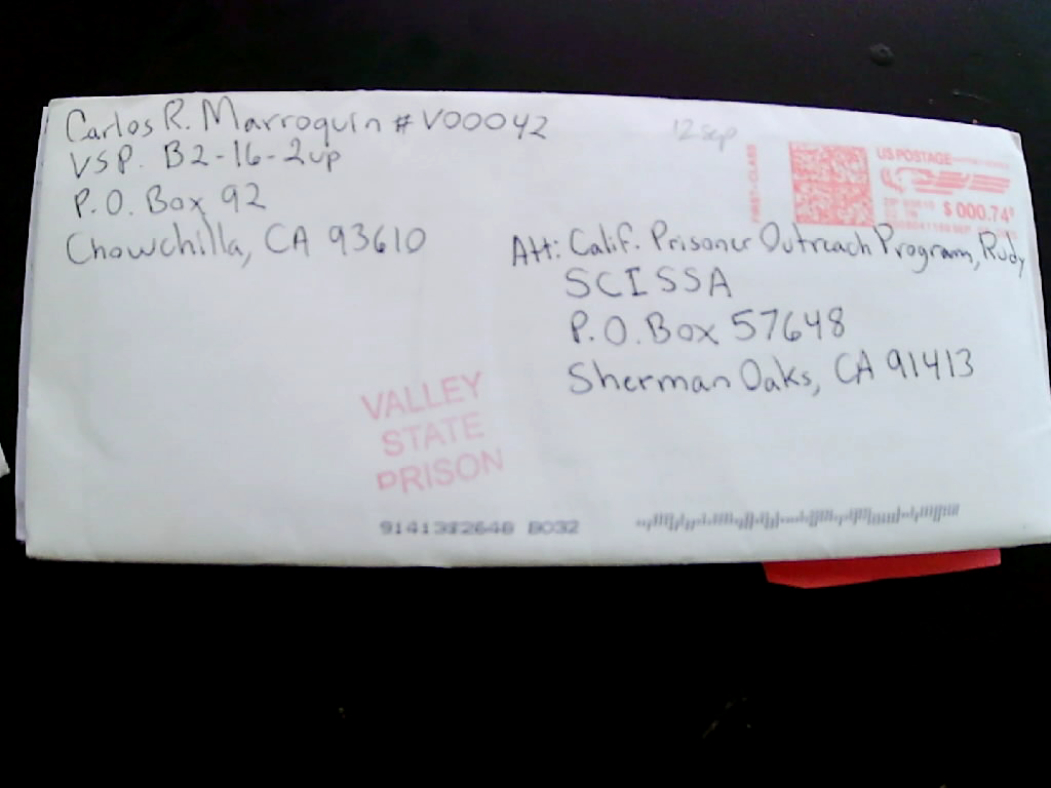 Carlos R. Marroquin # V00042
VSP. B2-16-2up
P.O. Box 92
Chowchilla, CA 93610
12 sep
FIRST-CLASS
US POSTAGE
$ 000.74
Att: Calif. Prisoner Outreach Program, Rudy
SCISSA
P.O. Box 57648
Sherman Oaks, CA 91413
VALLEY
STATE
PRISON
9141382648 B032